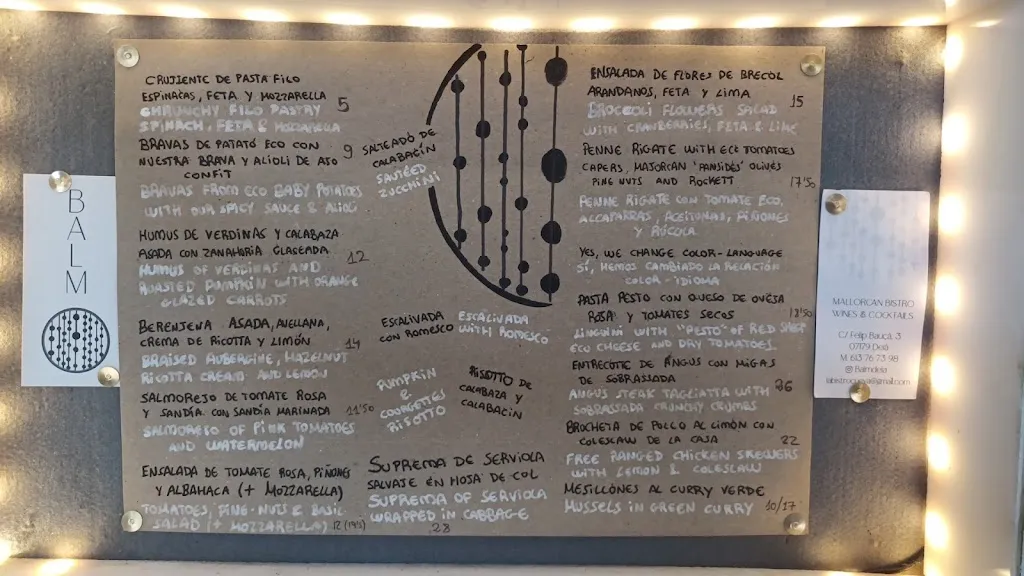 BALM
CRUJIENTE DE PASTA FILO
ESPINACAS, FETA Y MOZZARELLA
5
CRRUNCHY FILO PASTRY
SPINACH, FETA & MOZZARELLA
BRAVAS DE PATATO ECO CON
NUESTRA BRAVA Y ALIOLI DE AJO
CONFIT
9
BRAVAS FROM ECO BABY POTATOES
WITH OUR SPICY SAUCE & ALIOLI
HUMUS DE VERDINAS Y CALABAZA
ASADA CON ZANAHORIA GLASEADA
12
HUMUS OF VERDINAS AND
ROASTED PUMPKIN WITH ORANGE
GLAZED CARROTS
BERENJENA ASADA, AVELLANA,
CREMA DE RICOTTA Y LIMÓN
14
BRAISED AUBERGINE, HAZELNUT
RICOTTA CREAM AND LEMON
SALMOREJO DE TOMATE ROSA
Y SANDÍA CON SANDÍA MARINADA
11'50
SALMOREJO OF PINK TOMATOES
AND WATERMELON
ENSALADA DE TOMATE ROSA, PIÑONES
Y ALBAHACA (+ MOZZARELLA)
TOMATOES, PINE-NUTS & BASIL
SALAD (+ MOZZARELLA)
SALTEADO DE
CALABACÍN
SAUTEED
ZUCCHINI
ESCALIVADA
CON ROMESCO
ESCALIVADA
WITH ROMESCO
PUMPKIN
&
COURGETTES
RISOTTO
RISOTTO DE
CALABAZA Y
CALABACÍN
SUPREMA DE SERVIOLA
SALVAJE EN HOJA DE COL
SUPREMA OF SERVIOLA
WRAPPED IN CABBAGE
28
ENSALADA DE FLORES DE BRECOL
ARANDANOS, FETA Y LIMA
15
BROCCOLI FLOWERS SALAD
WITH CRANBERRIES, FETA & LIME
PENNE RIGATE WITH ECO TOMATOES
CAPERS, MAJORCAN "PANSIDES" OLIVES
PINE NUTS AND ROCKETT
17'50
PENNE RIGATE CON TOMATE ECO,
ALCAPARRAS, ACEITUNAS, PIÑONES
Y RÚCOLA
YES, WE CHANGE COLOR-LANGUAGE
SÍ, HEMOS CAMBIADO LA RELACIÓN
COLOR-IDIOMA
PASTA PESTO CON QUESO DE OVEJA
ROSA Y TOMATES SECOS
18'50
LINGUINI WITH "PESTO" OF RED SHEEP
ECO CHEESE AND DRY TOMATOES
ENTRECÔTE DE ANGUS CON MIGAS
DE SOBRASSADA
26
ANGUS STEAK TAGLIATTA WITH
SOBRASSADA CRUNCHY CRUMBS
BROCHETA DE POLLO AL LIMÓN CON
COLESLAW DE LA CASA
22
FREE RANGED CHICKEN SKEWERS
WITH LEMON & COLESLAW
MEJILLONES AL CURRY VERDE
MUSSELS IN GREEN CURRY
10/17
MALLORCAN BISTRO
WINES & COCKTAILS
C/ Felip Bauçà, 3
07179 Deià
M. 613 76 73 98
Balmdeia